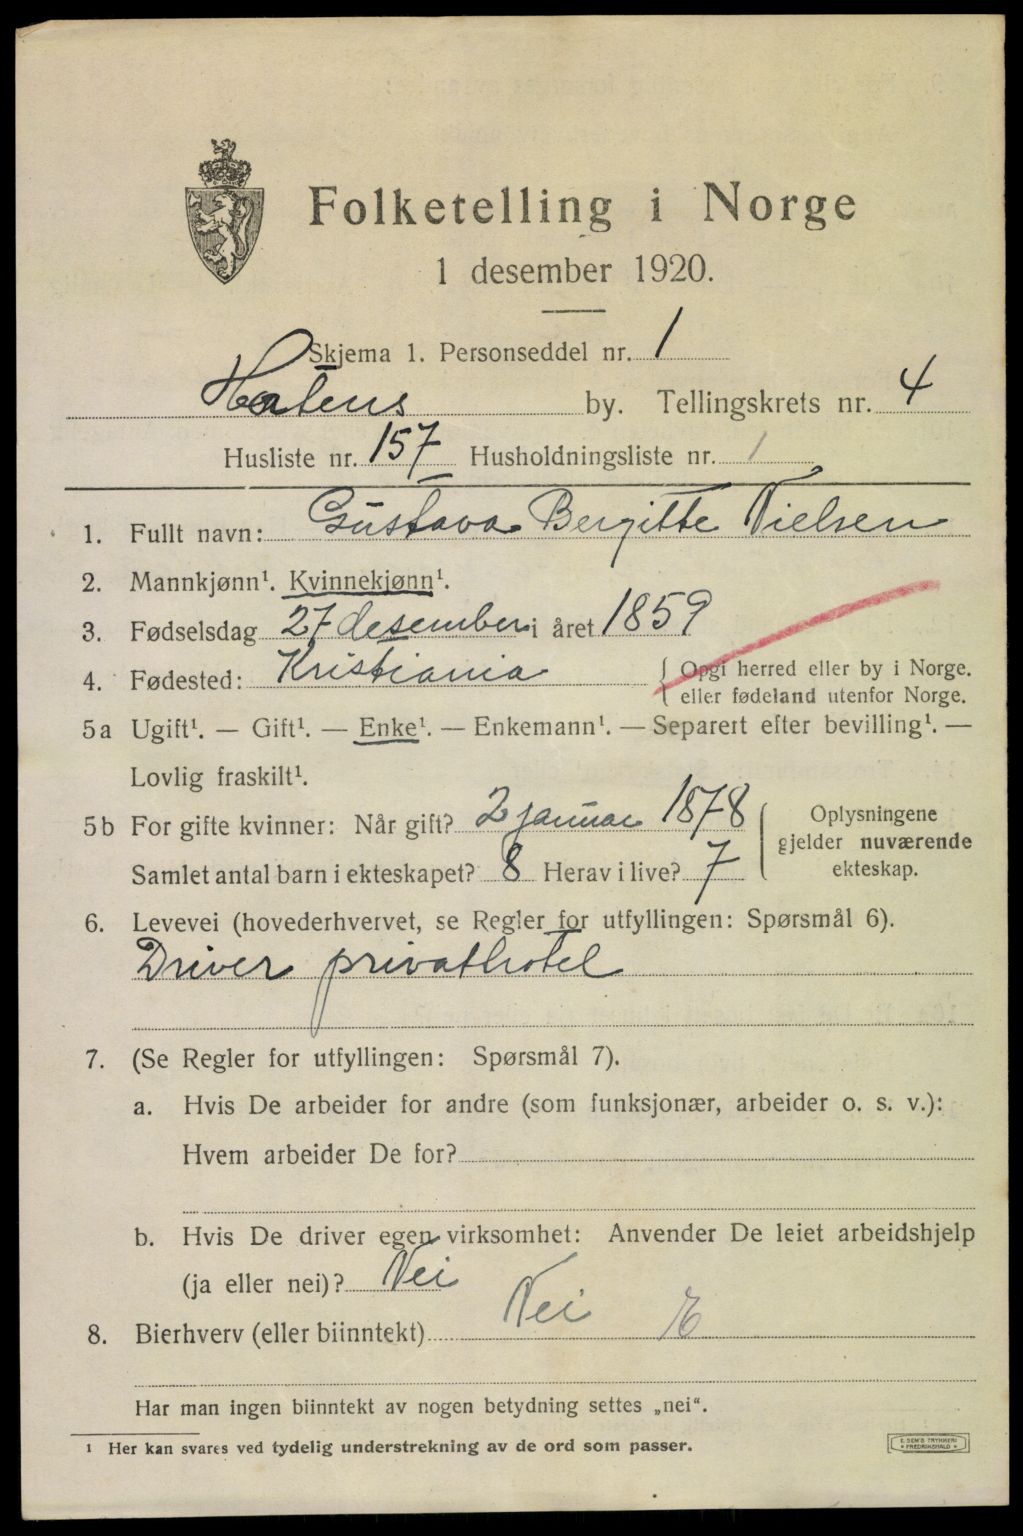 Folketelling i Norge
1 desember 1920.
Skjema 1. Personseddel nr. 1
Holens by. Tellingskrets nr. 4
Husliste nr. 157 Husholdningsliste nr. 1
1. Fullt navn: Gustava Bergitte Nielsen
2. Mannkjønn¹. Kvinnekjønn¹.
3. Fødselsdag 27 desember i året 1859
4. Fødested: Kristiania { Opgi herred eller by i Norge.
eller fødeland utenfor Norge.
5a Ugift¹. — Gift¹. — Enke¹. — Enkemann¹. — Separert efter bevilling¹. —
Lovlig fraskilt¹.
5b For gifte kvinner: Når gift? 2 januar 1878
Samlet antal barn i ekteskapet? 8 Herav i live? 7
Oplysningene
gjelder nuværende
ekteskap.
6. Levevei (hovederhvervet, se Regler for utfyllingen: Spørsmål 6).
Driver privathotel
7. (Se Regler for utfyllingen: Spørsmål 7).
a. Hvis De arbeider for andre (som funksjonær, arbeider o. s. v.):
Hvem arbeider De for?
b. Hvis De driver egen virksomhet: Anvender De leiet arbeidshjelp
(ja eller nei)? Nei
8. Bierhverv (eller biinntekt) Nei
Har man ingen biinntekt av nogen betydning settes „nei“.
¹ Her kan svares ved tydelig understrekning av de ord som passer.
E. SEM'S TRYKKERI
• FREDRIKSHALD •